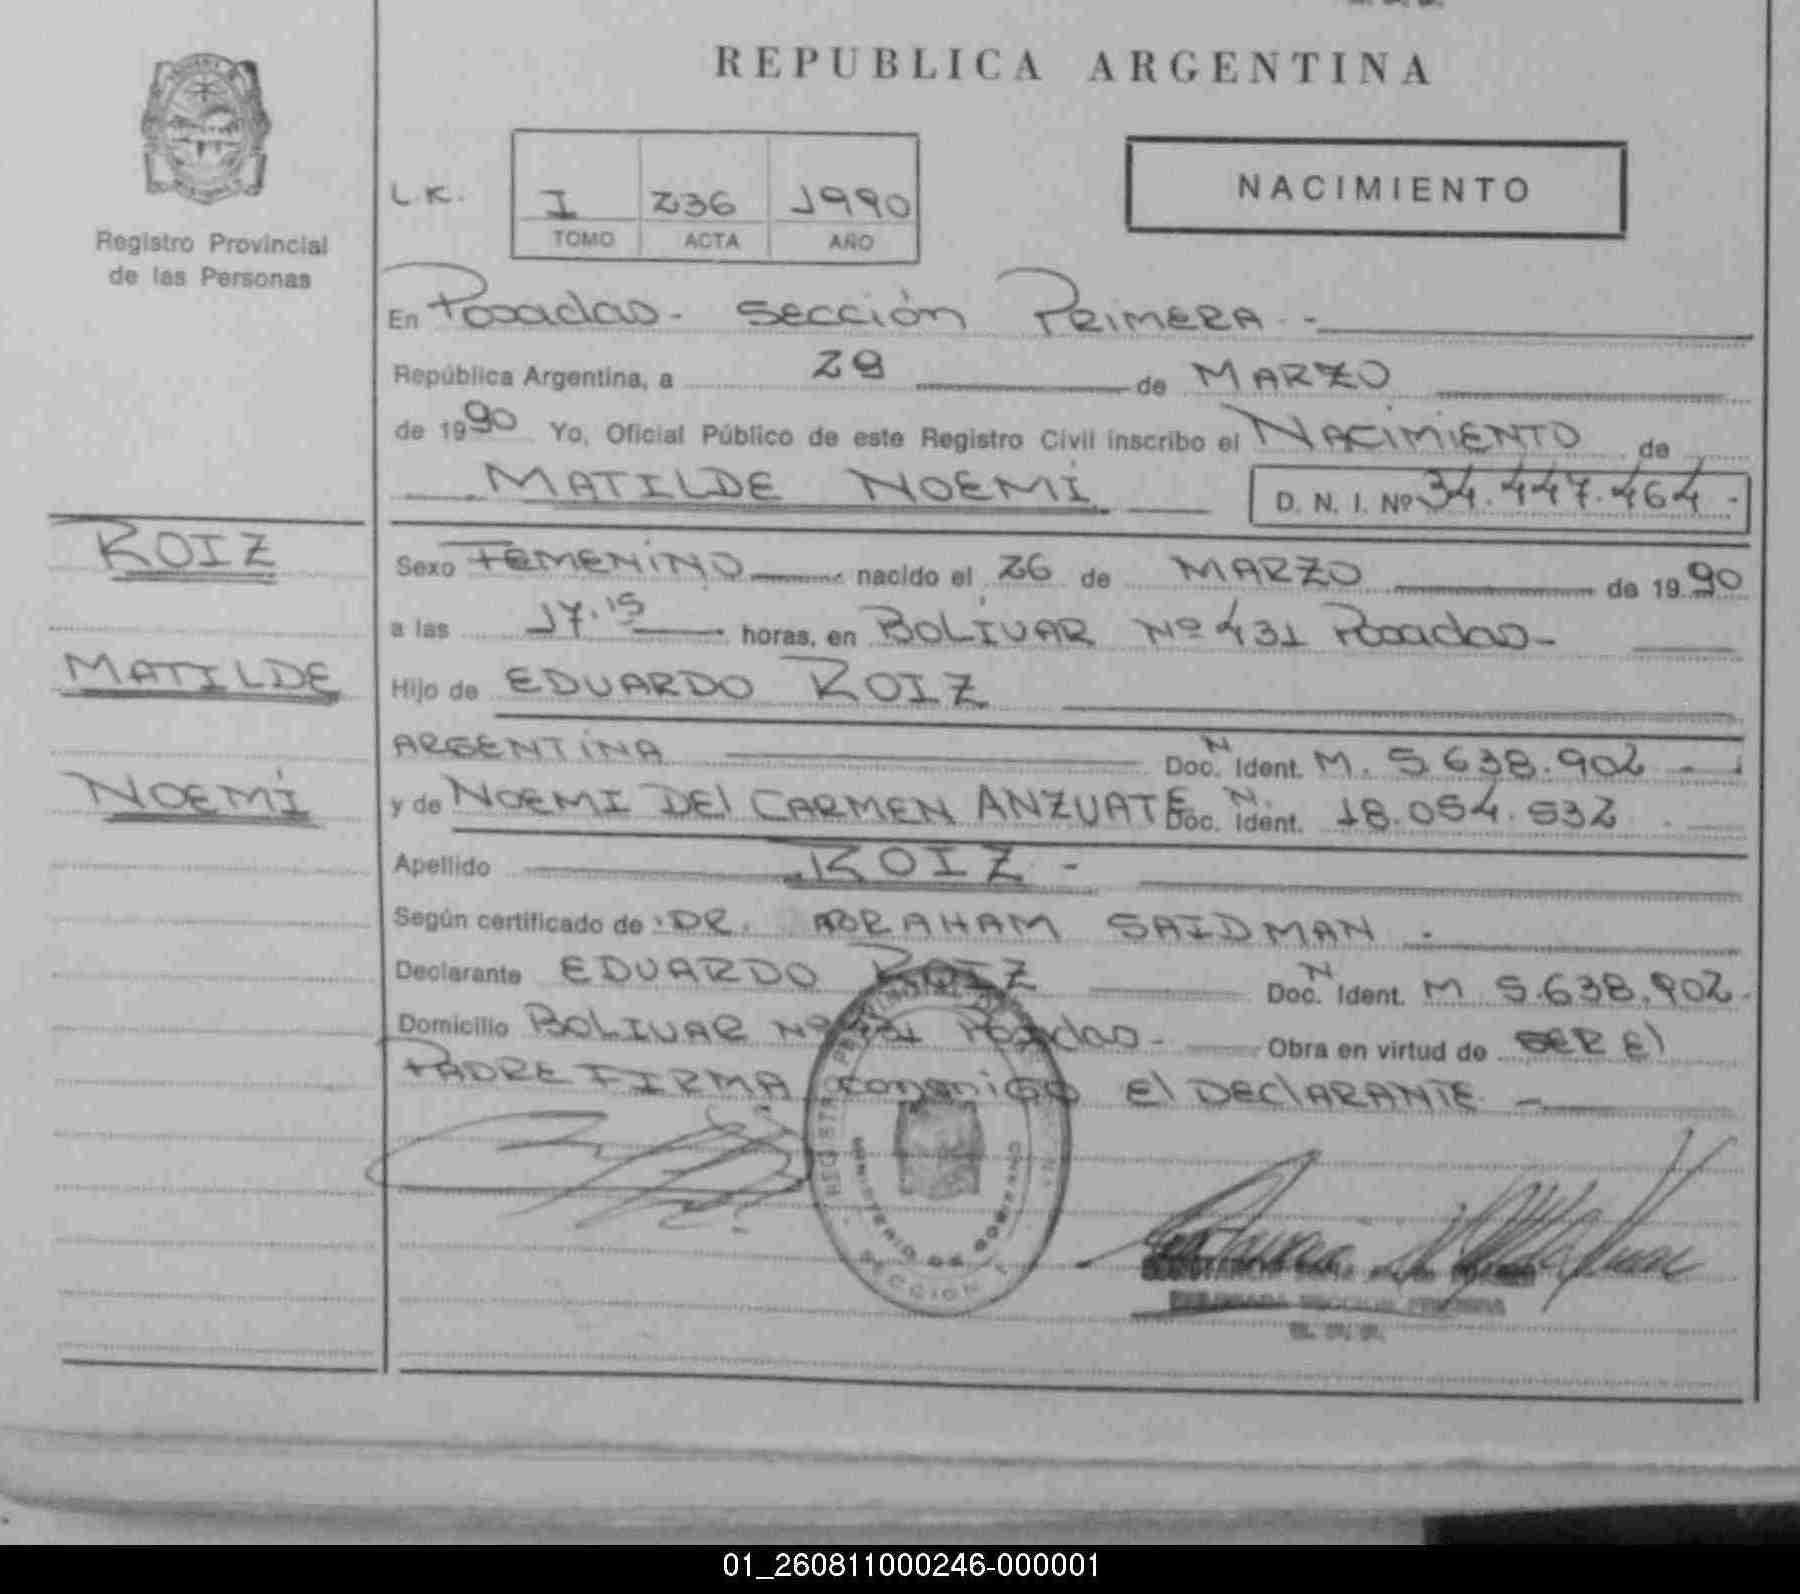 REPUBLICA ARGENTINA
Registro Provincial
de las Personas
L.K.
I 236 1990
TOMO ACTA AÑO
NACIMIENTO
En Posadas - Sección Primera -
República Argentina, a 28 de MARZO
de 1990 Yo, Oficial Público de este Registro Civil inscribo el NACIMIENTO de
MATILDE NOEMÍ D. N. I. Nº 34.447.464-
ROIZ
MATILDE
NOEMÍ
Sexo FEMENINO nacido el 26 de MARZO de 1990
a las 17.15 horas, en BOLÍVAR Nº 431 Posadas-
Hijo de EDUARDO ROIZ
ARGENTINA Doc. N Ident. M. 5.638.902 -
y de NOEMI DEl CARMEN ANZUATE Doc. N. Ident. 18.054.532
Apellido ROIZ -
Según certificado de DR. ABRAHAM SAIDMAN.
Declarante EDUARDO ROIZ Doc. N Ident. M 5.638.902.
Domicilio BOLIVAR Nº 431 Posadas- Obra en virtud de SER El
PADRE FIRMA conmigo El DEClARANTE. -
REGISTRO PROVINCIAL
MINISTERIO DE GOBIERNO
SECCION 1
01_260811000246-000001